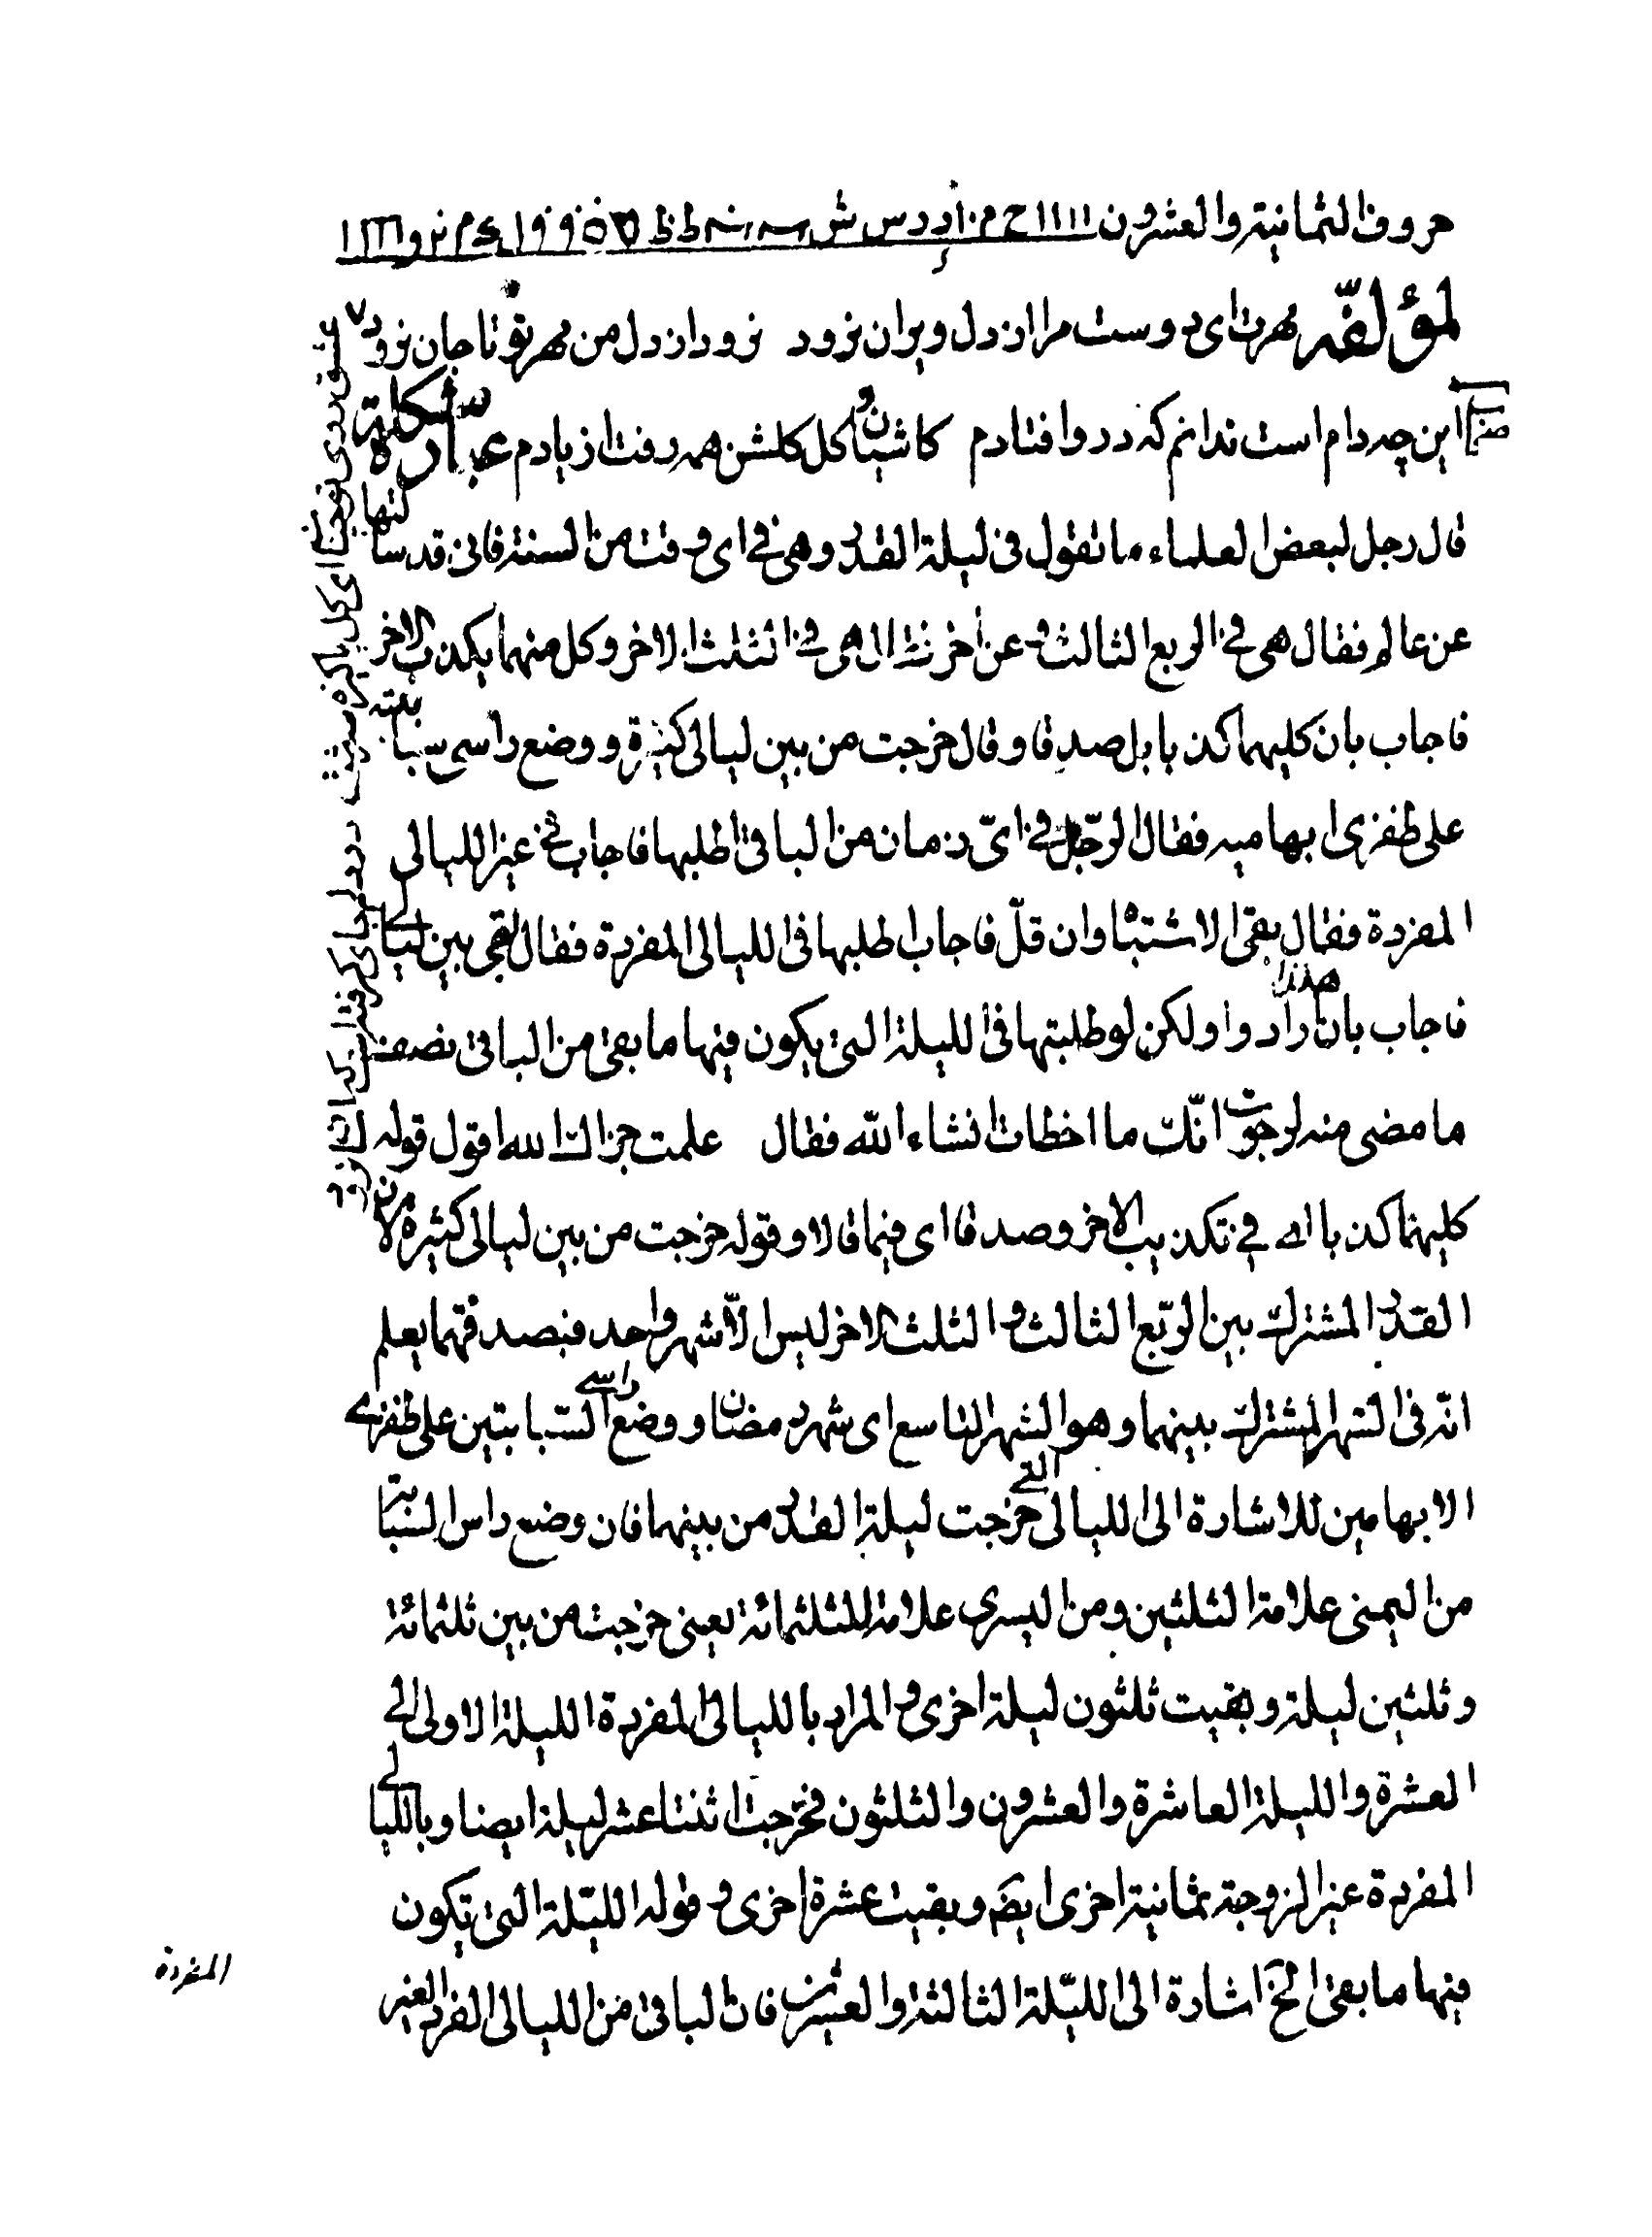 حروف الثمانية والعشرون
لمؤلفه مهرت ای دوست مرا از دل ویران نرود نرود از دل من مهر تو تا جان نرود
ایضا منه این چه دام است ندانم که در او افتادم کاشیان و گل و گلشن همه رفت از یادم عبارة مشکلة
قال رجل لبعض العلماء ما تقول فی لیلة القدر وهی فی ای وقت من السنة فانی قد سالتها
عن عالم فقال هی فی الربع الثالث وعن آخر فقال هی فی الثلث الاخر وکل منهما یکذب الاخر
فاجاب بان کلیهما کذبا بل صدقا وقال خرجت من بین لیالی کثیرة ووضع راسی سبابتیه
علی ظفری ابهامیه فقال الرجل فی ای زمان من الباقی اطلبها فاجاب فی غیر اللیالی
المفردة فقال بقی الاشتباه وان قل فاجاب اطلبها فی اللیالی المفردة فقال بقی بین لیالی
فاجاب بان هذا وا ولکن لو طلبتها فی اللیلة التی یکون فیها ما بقی من الباقی نصف
ما مضی منه لرجوت انک ما اخطات انشاء الله فقال علمت جزاک الله اقول قوله ان
کلیهما کذبا ای فی تکذیب الاخر وصدقا ای فیما قالا وقوله خرجت من بین لیالی کثیرة لان
القدر المشترک بین الربع الثالث والثلث الاخر لیس الا شهر واحد فبصدقهما یعلم
انه فی الشهر المشترک بینهما وهو الشهر التاسع ای شهر رمضان ووضع راسی السبابتین علی ظفری
الابهامین للاشارة الی اللیالی التی خرجت لیلة القدر من بینها فان وضع راس السبابة
من الیمنی علامة الثلثین ومن الیسری علامة للثلثمائة یعنی خرجت من بین ثلثمائة
وثلثین لیلة وبقیت ثلثون لیلة اخری والمراد باللیالی المفردة اللیلة الاولی الی
العشرة واللیلة العاشرة والعشرون والثلثون فخرجت اثنتا عشر لیلة ایضا وباللیالی
المفردة غیر الزوجة ثمانیة اخری ایضا وبقیت عشرة اخری وقوله اللیلة التی یکون
فیها ما بقی الخ اشارة الی اللیلة الثالثة والعشرین فان الباقی من اللیالی الفرد الغیر
المفردة